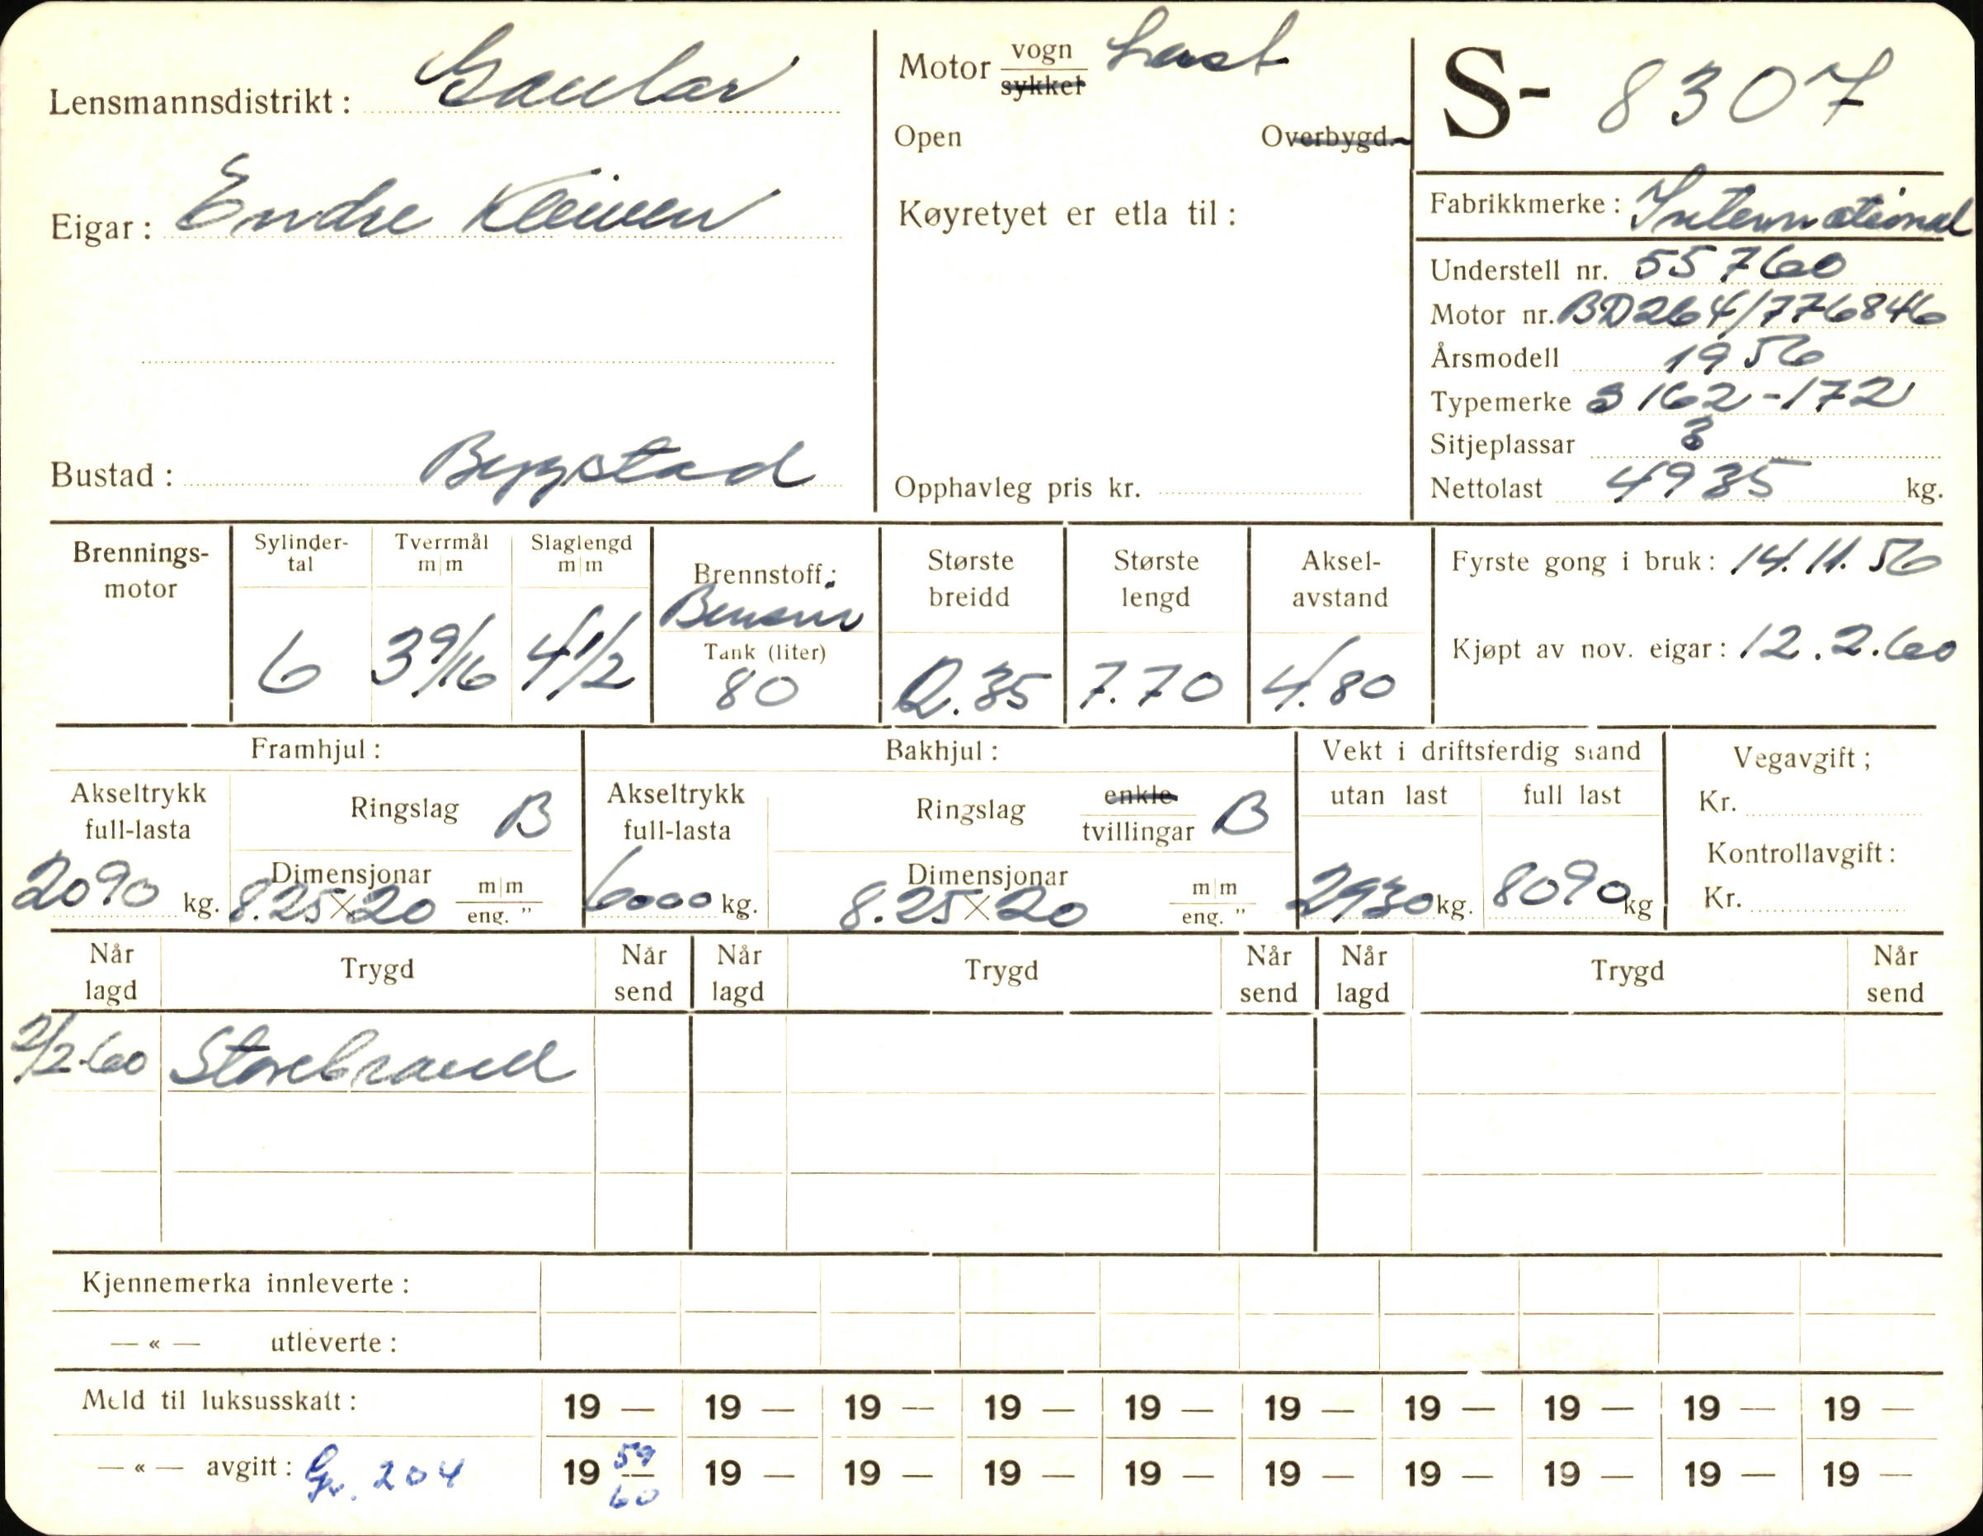 Lensmannsdistrikt: Gaular
Motor vogn sykkel Last
S- 8307
Open Overbygd.
Eigar: Endre Kleiven
Køyretyet er etla til:
Fabrikkmerke: International
Understell nr. 55760
Motor nr. BD264/776846
Årsmodell 1956
Typemerke S 162-172
Sitjeplassar 3
Bustad: Bygstad
Opphavleg pris kr.
Nettolast 4935 kg.
Brennings-motor
Sylinder-tal 6
Tverrmål m|m 3 9/16
Slaglengd m|m 4 1/2
Brennstoff: Bensin
Tank (liter) 80
Største breidd 2.35
Største lengd 7.70
Aksel-avstand 4.80
Fyrste gong i bruk: 14.11.56
Kjøpt av nov. eigar: 12.2.60
Framhjul:
Akseltrykk full-lasta 2090 kg.
Ringslag B
Dimensjonar 8.25×20 m|m eng. "
Bakhjul:
Akseltrykk full-lasta 6000 kg.
Ringslag enkle tvillingar B
Dimensjonar 8.25×20 m|m eng. "
Vekt i driftsferdig stand
utan last 2930 kg.
full last 8090 kg
Vegavgift;
Kr.
Kontrollavgift:
Kr.
Når lagd Trygd Når send Når lagd Trygd Når send Når lagd Trygd Når send
2/2-60 Storebrand
Kjennemerka innleverte:
— « — utleverte:
Meld til luksusskatt: 19 — 19 — 19 — 19 — 19 — 19 — 19 — 19 — 19 — 19 —
— « — avgitt: Gr. 204 19 59 — 60 19 — 19 — 19 — 19 — 19 — 19 — 19 — 19 — 19 —